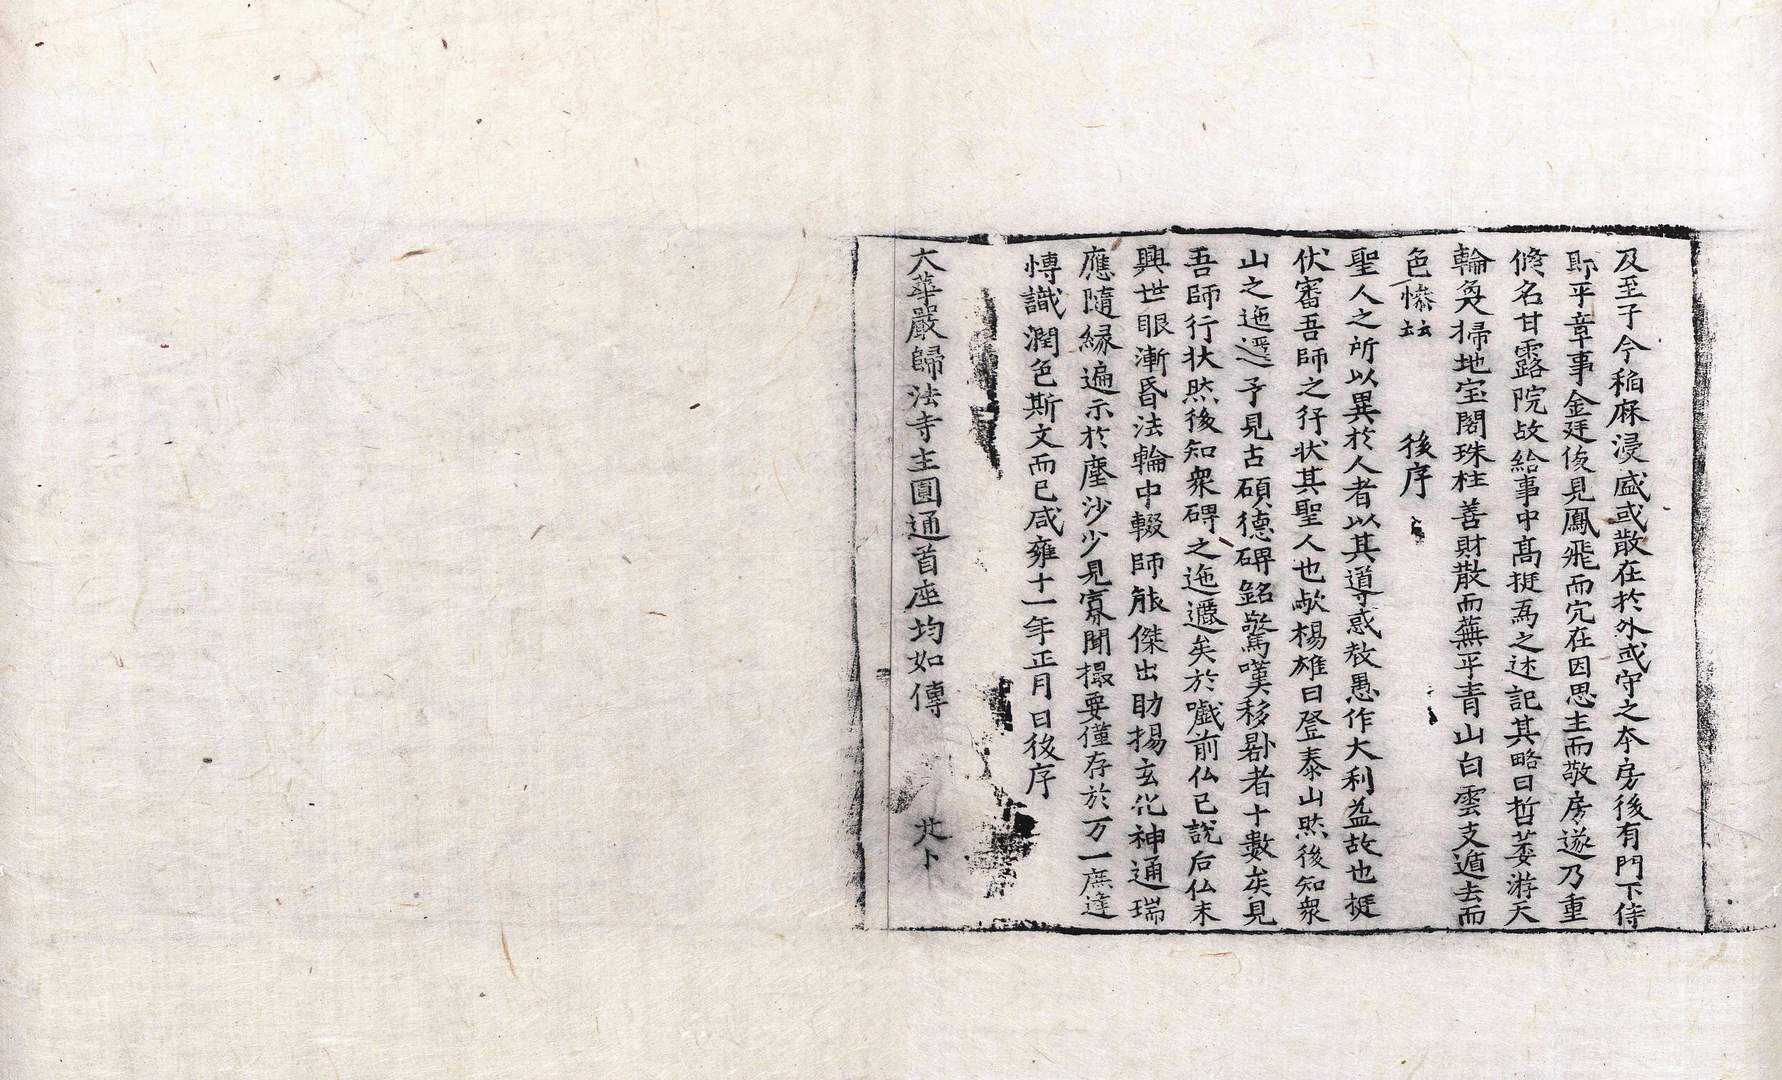 及至于今稻麻浸盛或散在於外或守之本房後有門下侍
郎平章事金廷俊見鳳飛而宂在因思主而敬房遂乃重
修名甘露院故給事中高挺爲之述記其略曰哲萎游天
輪奐掃地宝閣珠柱善財散而蕪平青山白雲支遁去而
色慘云云 後序
聖人之所以異於人者以其導惑教愚作大利益故也挺
伏審吾師之行状其聖人也歟楊雄曰登泰山然後知衆
山之迤邐予見古碩德碑銘驚嘆移晷者十數矣見
吾師行状然後知衆碑之迤邐矣於戲前仏已說后仏未
興世眼漸昏法輪中輟師能傑出助揚玄化神通瑞
應隨緣遍示於塵沙少見寡聞撮要僅存於万一庶達
博識潤色斯文而已咸雍十一年正月日後序
大華嚴歸法寺主圓通首座均如傳 廿卜